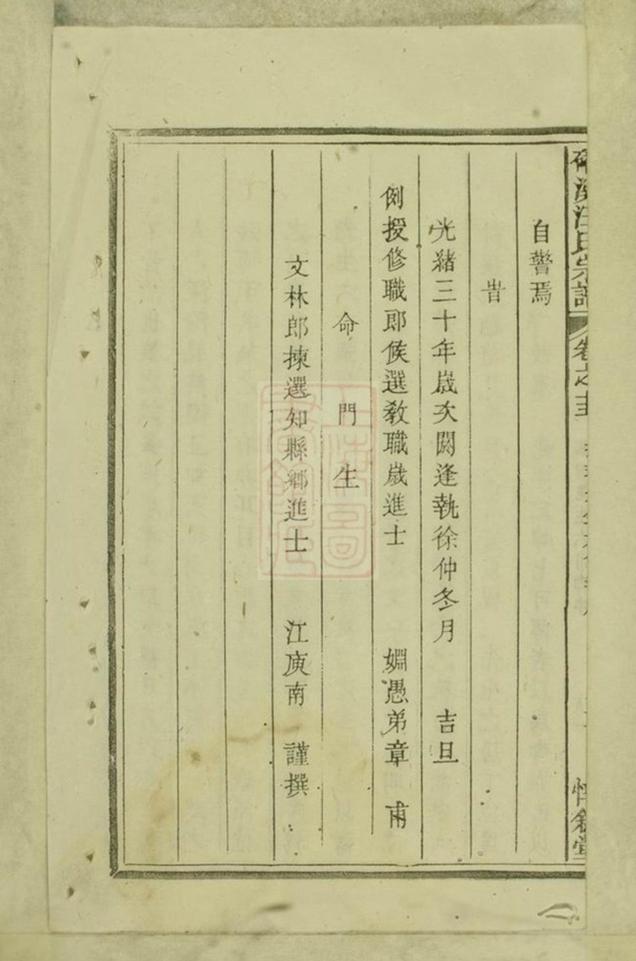 自警焉
旹
光緒三十年歲次閼逢執徐仲冬月 吉旦
例授修職郎候選教職歲進士 婣愚弟章 甫
命門生
文林郎揀選知縣鄉進士 江庚南 謹撰
汪氏宗譜 卷之
惇敘堂